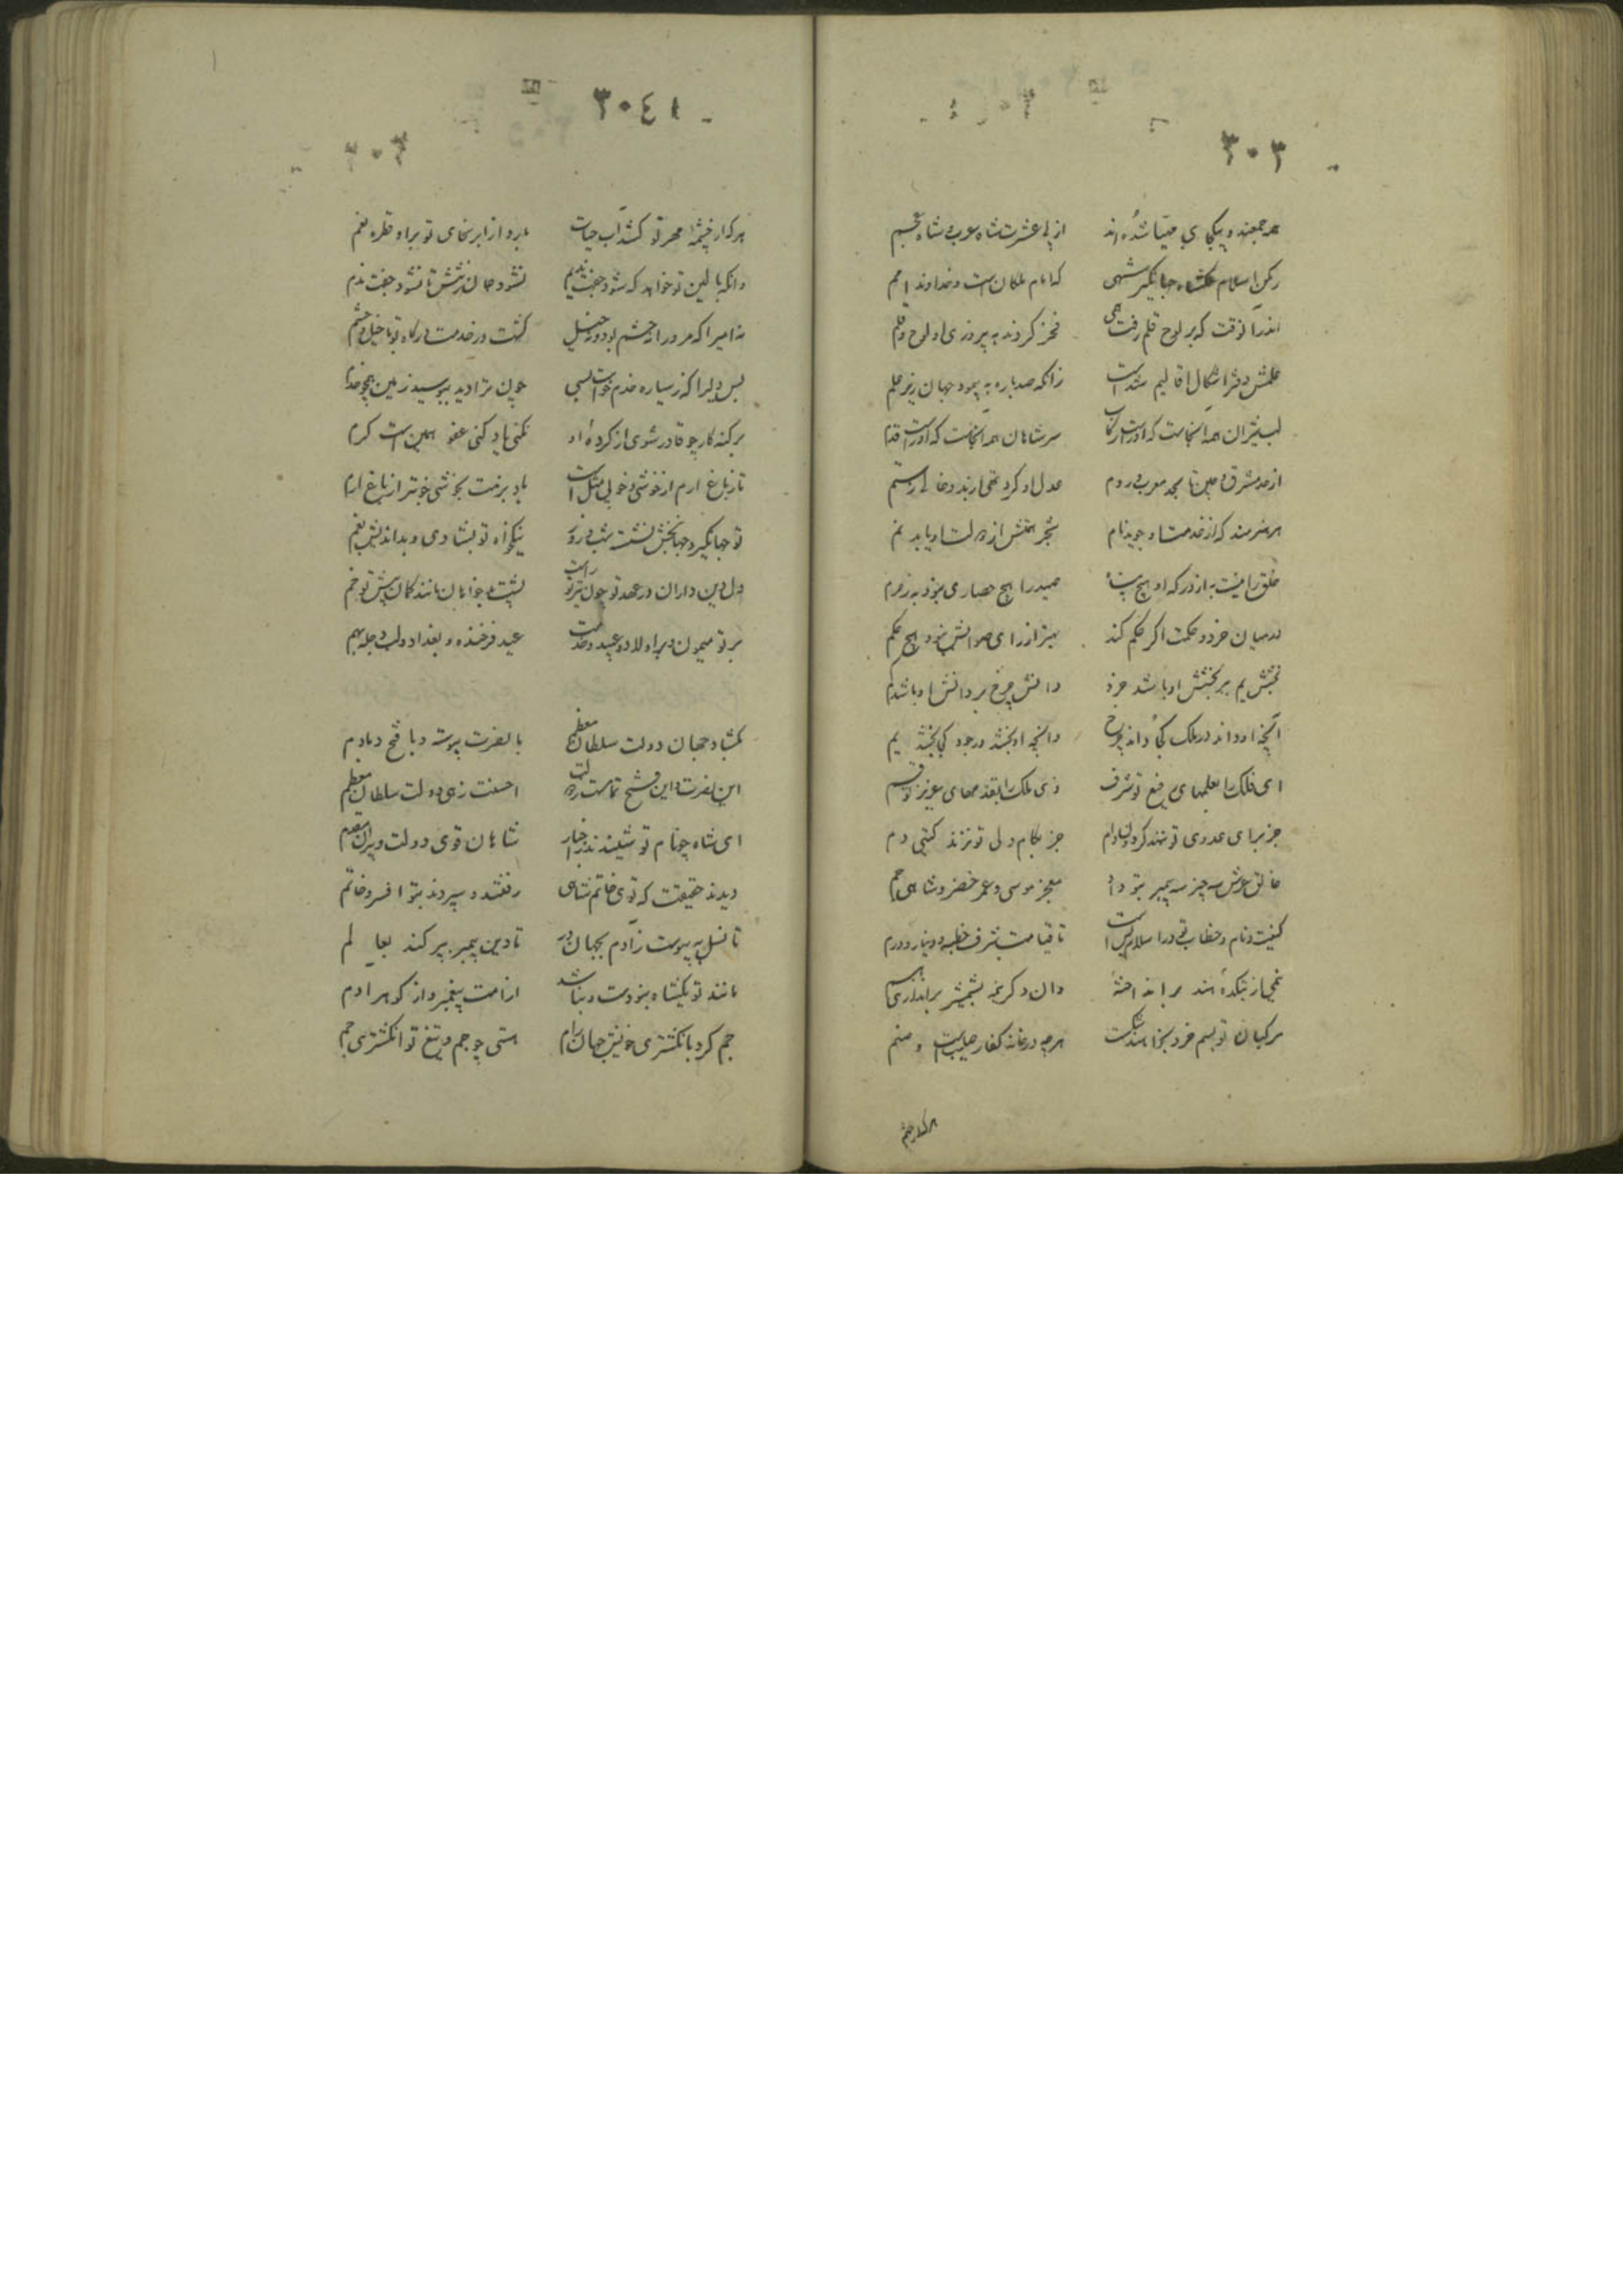 ٣٠٣
همه جمعند و بیکجای مهیا شده‌اند از پی عشرت شاه عرب و شاه عجم
رکن اسلام ملکشاه جهانگیر شهی که امام ملکان است و خداوند امم
اندر آنوقت که بر لوح قلم رفت همی فخر کردند به پیروزی او لوح و قلم
علمش دفتر اشکال اقالیم شدست زانکه صدباره به پیمود جهان زیر علم
لب میران همه آنجاست که او راست رکاب سر شاهان همه آنجاست که او راست قدم
از حد مشرق و چین تا بحد مغرب و روم عدل او کرد تهی از بد و خالی ز ستم
هر هنرمند که از خدمت او جوید نام شجر بختش از دولت او یابد نم
خلق را نیست به از درکه او هیچ پناه صید را هیچ حصاری نبود به ز حرم
در میان خرد و حکمت اگر حکم کند بهتر از رای صوابش نبود هیچ حکم
بخشش یم بر بخشش او باشد جزو دانش چرخ بر دانش او باشد کم
آنچه او داند در ملک کجا داند چرخ و آنچه او بخشد در جود کی بخشد یم
ای فلک را بعلمهای رفیع تو شرف وی ملک را بقدمهای عزیز تو قسم
جز برای عدوی تو ننهد گردون دام جز بکام ولی تو نزند گیتی دم
خالق عرش سه چیز سه پیمبر بتو داد معجز موسی و عمر خضر و شاهی جم
کنیت و نام و خطاب تو در اسلام بس است تا قیامت شرف خطبه و دینار و درم
نیمی از بتکده هند برانداخته‌ٔ وان دگر نیمه بشمشیر براندازی هم
مرکبان تو بسم خرد بخواهند شکست هرچه در خانه کفار صلیب است و صنم
٣٠٤١
هرکه از چشمه مهر تو کشد آب حیات بارد از ابر سخای تو بر او قطره نعم
وانکه با کین تو خواهد که شود جفت ندیم نشود جان ز تنش تا نشود جفت ندم
نه امیرا که مر او را حشم بود و خیل گشت در خدمت درگاه تو با خیل و حشم
بس دلیرا که ز سیاره خدم خواست بسی چون ترا دید ببوسید زمین همچو خدم
بر گنه کار چو قادر شوی از کرده او نکنی یاد کنی عفو همین است کرم
تا ز باغ ارم از خوشی و خوبی مثل است باد بزمت بخوشی خوشتر از باغ ارم
تو جهانگیر و جهانبخش نشسته شب و روز نیکخواه تو بشادی و بداندیش بغم
دل دین داران در عهد تو چون تیر تو راست پشت بدخواهان مانند کمان پیش تو خم
بر تو میمون و بر اولاد تو عید و خدمت عید فرخنده و بغداد و لب دجله بهم
بگشاد جهان دولت سلطان معظم با نصرت پیوسته و با فتح دمادم
این نصرت و این فتح تمامست ز دولت احسنت زهی دولت سلطان معظم
ای شاه چو نام تو شنیدند در اخبار شاهان قوی دولت و پیران مقدم
دیدند حقیقت که توی خاتم شاهی رفتند و سپردند بتو افسر و خاتم
تا نسل به پیوست ز آدم بجهان در تا دین پیمبر بپراکند بعالم
مانند تو یکشاه نبودست و نباشد از امت پیغمبر و از گوهر آدم
جم کرد بانگشتری خویش جهان رام هستی چو جم و تیغ تو انگشتری جم